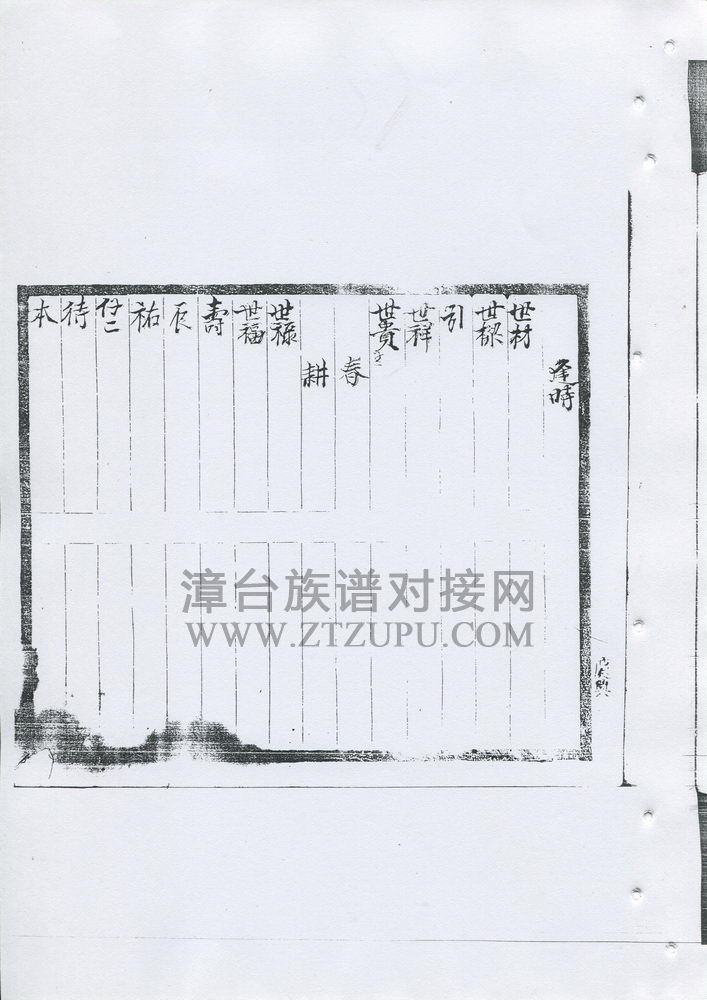 逢時
世材
世樑
引
世祥
世貴
春
耕
世祿
世福
壽
辰
祐
仔二
待
本
漳台族谱对接网
WWW.ZTZUPU.COM